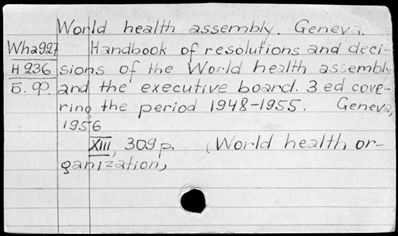 World health assembly. Geneva.
Wha927 Handbook of resolutions and deci-
H 236 sions of the World health assembly
б. ф. and the executive board. 3 ed cove-
ring the period 1948-1955. Geneva,
1956
XIII, 309 p. (World health or-
ganization)